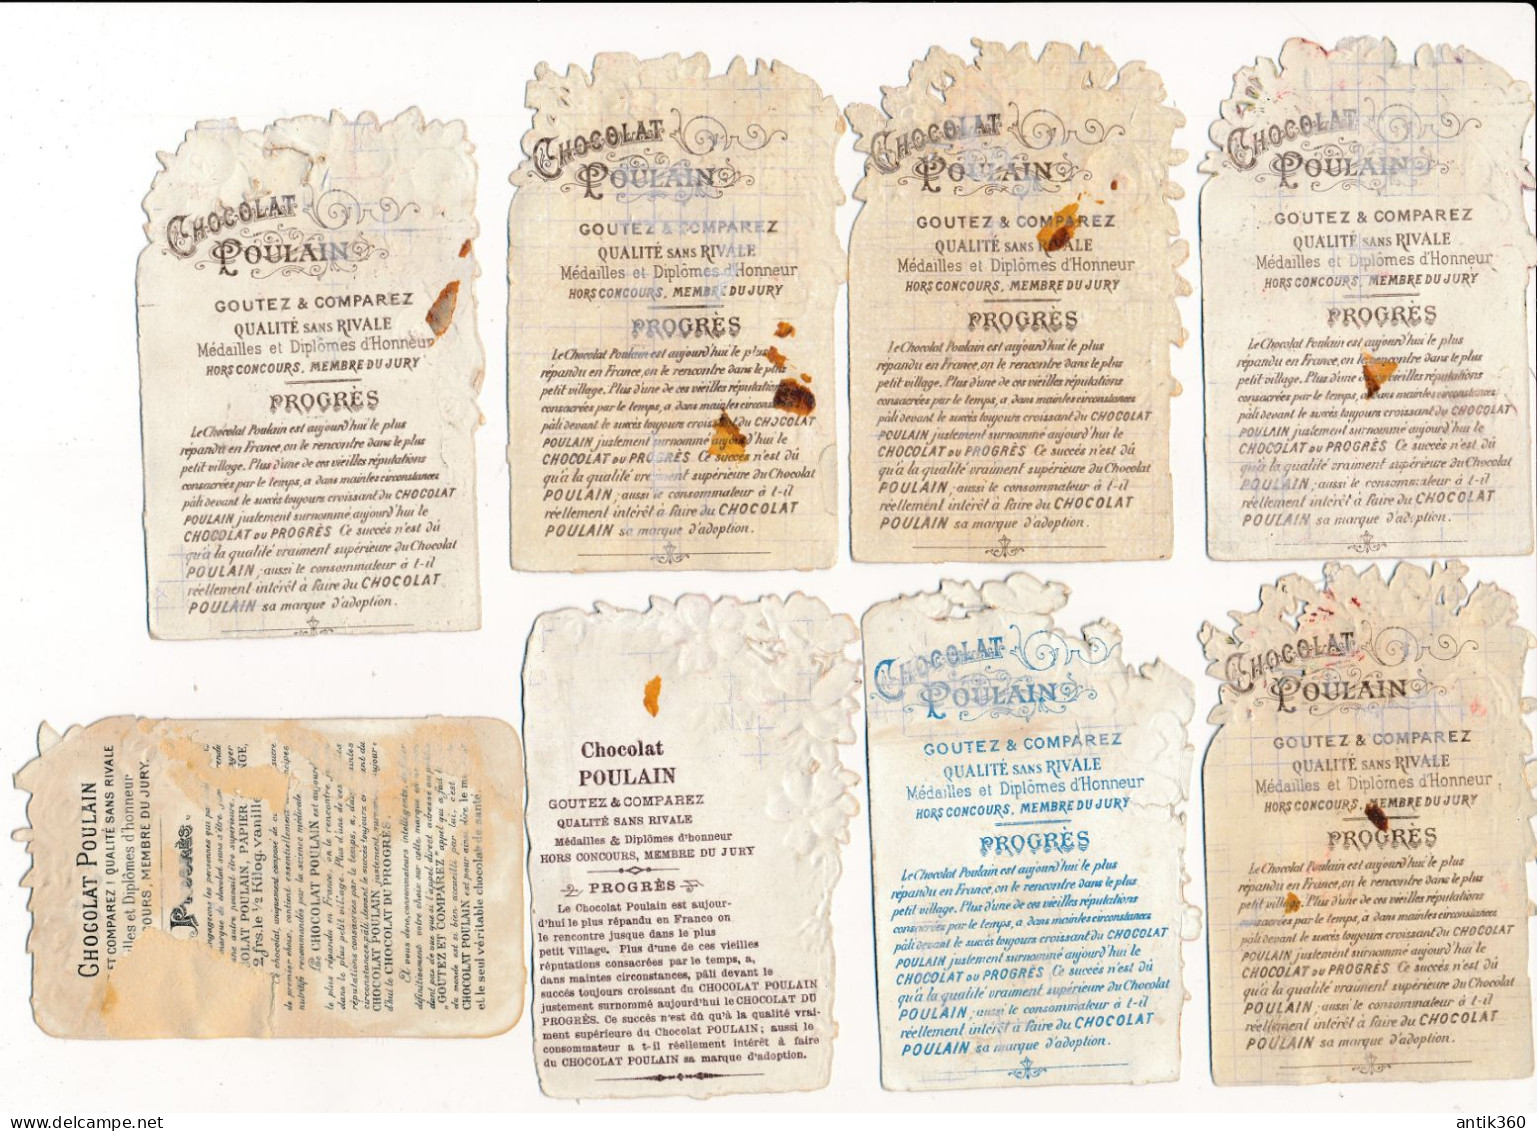 CHOCOLAT
POULAIN
GOUTEZ & COMPAREZ
QUALITÉ SANS RIVALE
Médailles et Diplômes d'Honneur
HORS CONCOURS, MEMBRE DU JURY
PROGRÈS
Le Chocolat Poulain est aujourd'hui le plus
répandu en France, on le rencontre dans le plus
petit village. Plus d'une de ces vieilles réputations
consacrées par le temps, a dans maintes circonstances
pâli devant le succès toujours croissant du CHOCOLAT
POULAIN justement surnommé aujourd'hui le
CHOCOLAT DU PROGRÈS Ce succès n'est dû
qu'à la qualité vraiment supérieure du Chocolat
POULAIN ; aussi le consommateur à t-il
réellement intérêt à faire du CHOCOLAT
POULAIN sa marque d'adoption.
CHOCOLAT
POULAIN
GOUTEZ & COMPAREZ
QUALITÉ SANS RIVALE
Médailles et Diplômes d'Honneur
HORS CONCOURS, MEMBRE DU JURY
PROGRÈS
Le Chocolat Poulain est aujourd'hui le plus
répandu en France, on le rencontre dans le plus
petit village. Plus d'une de ces vieilles réputations
consacrées par le temps, a dans maintes
pâli devant le succès toujours croissant du CHOCOLAT
POULAIN justement surnommé aujourd'hui le
CHOCOLAT DU PROGRÈS Ce succès n'est dû
qu'à la qualité vraiment supérieure du Chocolat
POULAIN ; aussi le consommateur à t-il
réellement intérêt à faire du CHOCOLAT
POULAIN sa marque d'adoption.
CHOCOLAT
POULAIN
GOUTEZ & COMPAREZ
QUALITÉ SANS RIVALE
Médailles et Diplômes d'Honneur
HORS CONCOURS, MEMBRE DU JURY
PROGRÈS
Le Chocolat Poulain est aujourd'hui le plus
répandu en France, on le rencontre dans le plus
petit village. Plus d'une de ces vieilles réputations
consacrées par le temps, a dans maintes circonstances
pâli devant le succès toujours croissant du CHOCOLAT
POULAIN justement surnommé aujourd'hui le
CHOCOLAT DU PROGRÈS Ce succès n'est dû
qu'à la qualité vraiment supérieure du Chocolat
POULAIN ; aussi le consommateur à t-il
réellement intérêt à faire du CHOCOLAT
POULAIN sa marque d'adoption.
CHOCOLAT
POULAIN
GOUTEZ & COMPAREZ
QUALITÉ SANS RIVALE
Médailles et Diplômes d'Honneur
HORS CONCOURS, MEMBRE DU JURY
PROGRÈS
Le Chocolat Poulain est aujourd'hui le plus
répandu en France, on le rencontre dans le plus
petit village. Plus d'une de ces vieilles réputations
consacrées par le temps, a dans maintes circonstances
pâli devant le succès toujours croissant du CHOCOLAT
POULAIN justement surnommé aujourd'hui le
CHOCOLAT DU PROGRÈS Ce succès n'est dû
qu'à la qualité vraiment supérieure du Chocolat
POULAIN ; aussi le consommateur à t-il
réellement intérêt à faire du CHOCOLAT
POULAIN sa marque d'adoption.
CHOCOLAT POULAIN
ET COMPAREZ ! QUALITÉ SANS RIVALE
et Diplômes d'honneur
MEMBRE DU JURY.
les personnes qui
marque de chocolat sans s'être
autre pourrait être supérieure.
POULAIN, PAPIER
2 frs. le ½ Kilog. vanillé
Ce chocolat, uniquement composé de
sucre
de premier choix, contient essentiellement
recommandés par la science médicale
CHOCOLAT POULAIN est
le plus répandu en France, on le rencontre
dans le plus petit village. Plus d'une de ces
réputations consacrées par le temps, a, dans
circonstances, pâli devant le succès toujours
CHOCOLAT POULAIN, justement,
d'hui le CHOCOLAT DU PROGRÈS.
consommateurs intelligents,
définitivement votre choix sur cette marque
dont pas de vue que si l'appel direct adressé au
"GOUTEZ ET COMPAREZ" appel qui a fait le
du monde est si bien accueilli par lui, c'est
CHOCOLAT POULAIN est pour ainsi dire le
et le seul véritable chocolat de santé.
Chocolat
POULAIN
GOUTEZ & COMPAREZ
QUALITÉ SANS RIVALE
Médailles & Diplômes d'honneur
HORS CONCOURS, MEMBRE DU JURY
PROGRÈS
Le Chocolat Poulain est aujour-
d'hui le plus répandu en France on
le rencontre jusque dans le plus
petit Village. Plus d'une de ces vieilles
réputations consacrées par le temps, a,
dans maintes circonstances, pâli devant le
succès toujours croissant du CHOCOLAT POULAIN
justement surnommé aujourd'hui le CHOCOLAT DU
PROGRÈS. Ce succès n'est dû qu'à la qualité vrai-
ment supérieure du Chocolat POULAIN ; aussi le
consommateur a t-il réellement intérêt à faire
du CHOCOLAT POULAIN sa marque d'adoption.
CHOCOLAT
POULAIN
GOUTEZ & COMPAREZ
QUALITÉ SANS RIVALE
Médailles et Diplômes d'Honneur
HORS CONCOURS, MEMBRE DU JURY
PROGRÈS
Le Chocolat Poulain est aujourd'hui le plus
répandu en France, on le rencontre dans le plus
petit village. Plus d'une de ces vieilles réputations
consacrées par le temps, a dans maintes circonstances
pâli devant le succès toujours croissant du CHOCOLAT
POULAIN justement surnommé aujourd'hui le
CHOCOLAT DU PROGRÈS Ce succès n'est dû
qu'à la qualité vraiment supérieure du Chocolat
POULAIN ; aussi le consommateur à t-il
réellement intérêt à faire du CHOCOLAT
POULAIN sa marque d'adoption.
CHOCOLAT
POULAIN
GOUTEZ & COMPAREZ
QUALITÉ SANS RIVALE
Médailles et Diplômes d'Honneur
HORS CONCOURS, MEMBRE DU JURY
PROGRÈS
Le Chocolat Poulain est aujourd'hui le plus
répandu en France, on le rencontre dans le plus
petit village. Plus d'une de ces vieilles réputations
consacrées par le temps, a dans maintes circonstances
pâli devant le succès toujours croissant du CHOCOLAT
POULAIN justement surnommé aujourd'hui le
CHOCOLAT DU PROGRÈS Ce succès n'est dû
qu'à la qualité vraiment supérieure du Chocolat
POULAIN ; aussi le consommateur à t-il
réellement intérêt à faire du CHOCOLAT
POULAIN sa marque d'adoption.
antik360